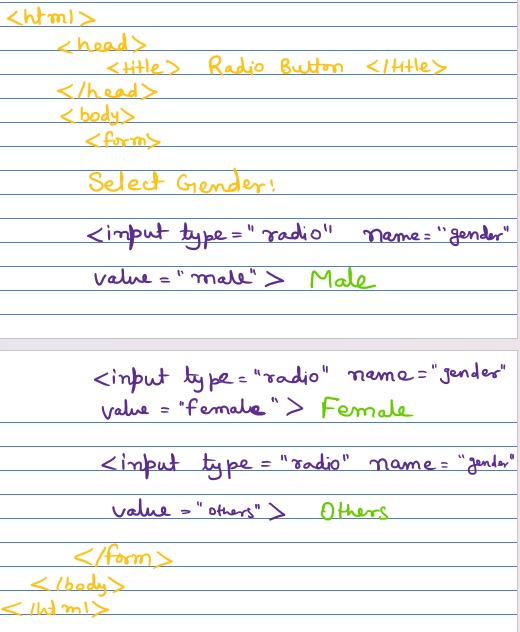 <html>
<head>
<title> Radio Button </title>
</head>
<body>
<form>
Select Gender:
<input type="radio" name="gender"
value="male"> Male
<input type="radio" name="gender"
value="female"> Female
<input type="radio" name="gender"
value="others"> Others
</form>
</body>
</html>